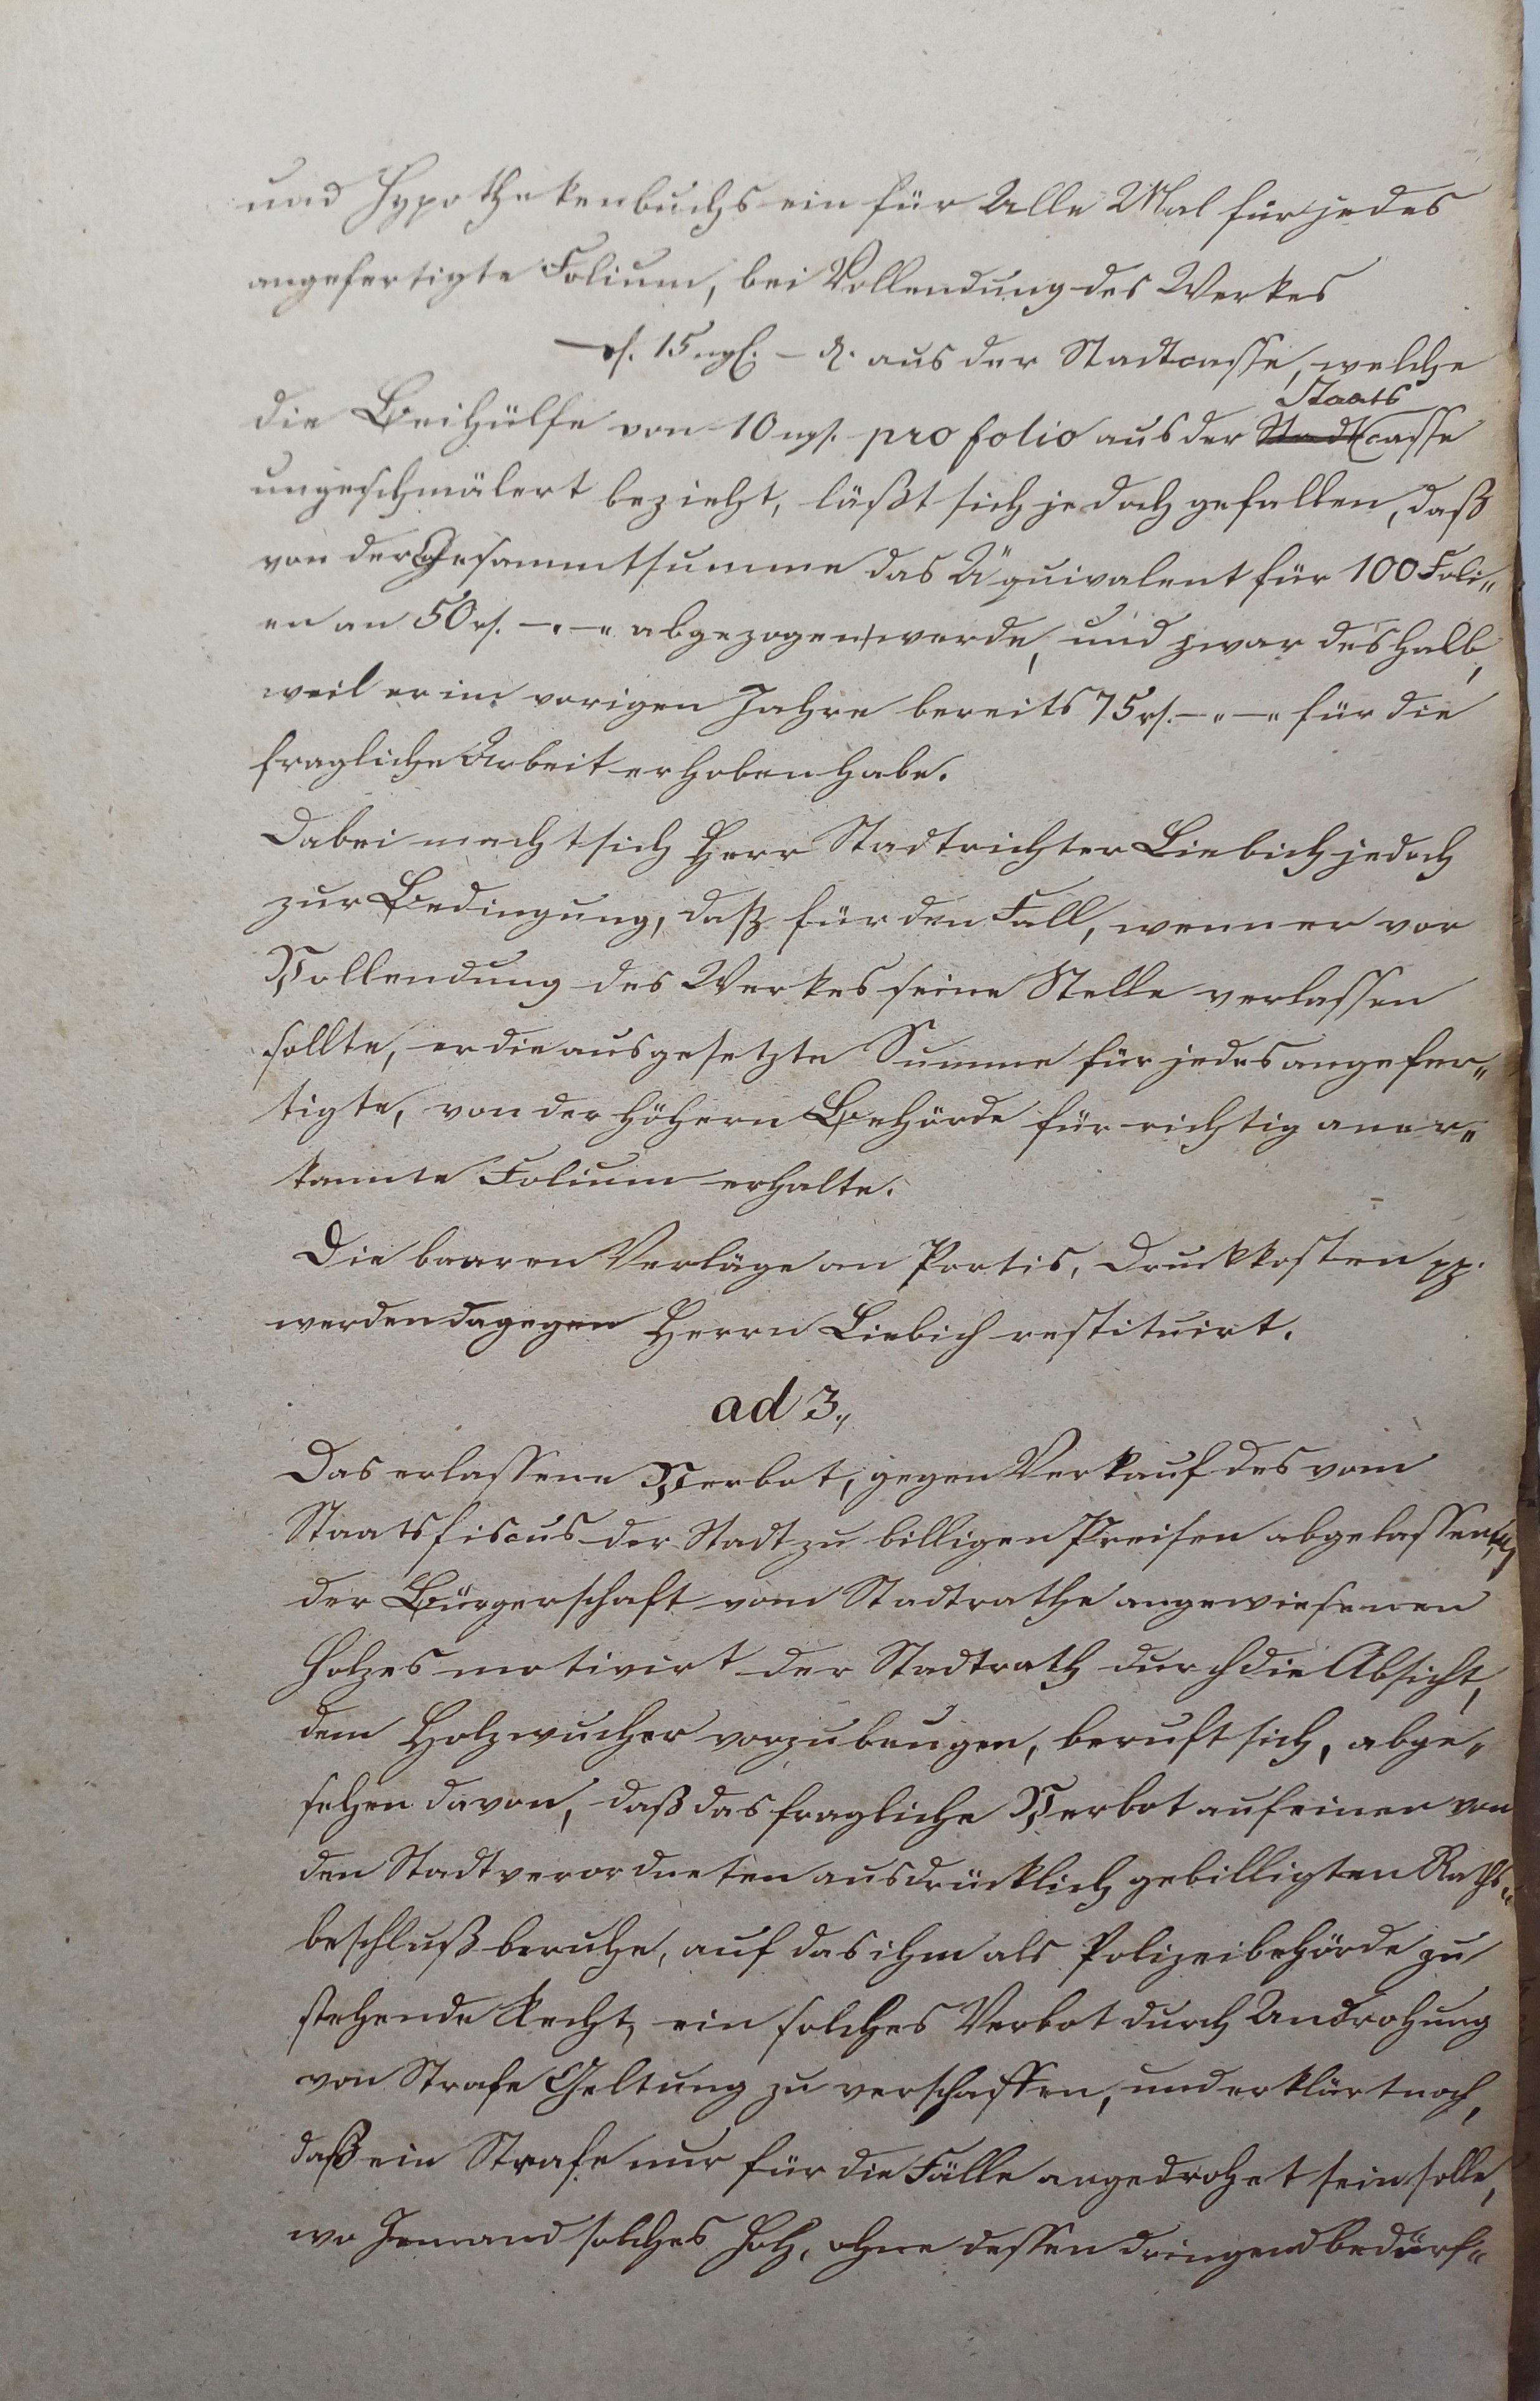 und Hypothekenbuchs ein für Alle Mal für jedes
angefertigte Folium, bei Vollendung des Werkes
— rf. 15 ngl. — d. aus der Stadtcasse, welche
die Beihülfe von 10 ngl. pro folio aus der Stadt Staats casse
ungeschmälert bezieht, läßt sich jedoch gefallen, daß
von der Gesammtsumme das Äquivalent für 100 Foli-
en an 50 rf. —„ —„ abgezogen werde, und zwar deshalb,
weil er im vorigen Jahre bereits 75 rf. —„ —„ für die
fragliche Arbeit erhoben habe.
Dabei macht sich Herr Stadtrichter Liebich jedoch
zur Bedingung, daß für den Fall, wenn er vor
Vollendung des Werkes seine Stelle verlassen
sollte, er die ausgesetzte Summe für jedes angefer-
tigte, von der höhern Behörde für richtig aner-
kannte Folium erhalte.
Die baaren Verläge an Portis, Druckkosten pp.
werden dagegen Herrn Liebich restituirt.
ad 3.,
Das erlassene Verbot, gegen Verkauf des vom
Staatsfiscus der Stadt zu billigen Preisen abgelassenen,
der Bürgerschaft vom Stadtrathe angewiesenen
Holzes motivirt der Stadtrath durch die Absicht,
dem Holzwucher vorzubeugen, beruft sich, abge-
sehen davon, daß das fragliche Verbot auf einen von
den Stadtverordneten ausdrücklich gebilligten Raths-
beschluß beruhe, auf das ihm als Polizeibehörde zu
stehende Recht, ein solches Verbot durch Androhung
von Strafe Geltung zu verschaffen, und erklärt noch,
daß ein Strafe nur für die Fälle angedrohet sein solle,
wo Jemand solches Holz, ohne dessen dringend bedürf-